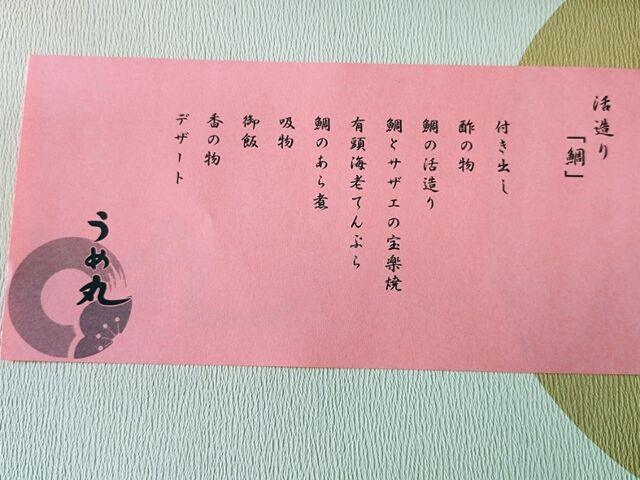 活造り
「鯛」
付き出し
酢の物
鯛の活造り
鯛とサザエの宝楽焼
有頭海老てんぷら
鯛のあら煮
吸物
御飯
香の物
デザート
うめ丸